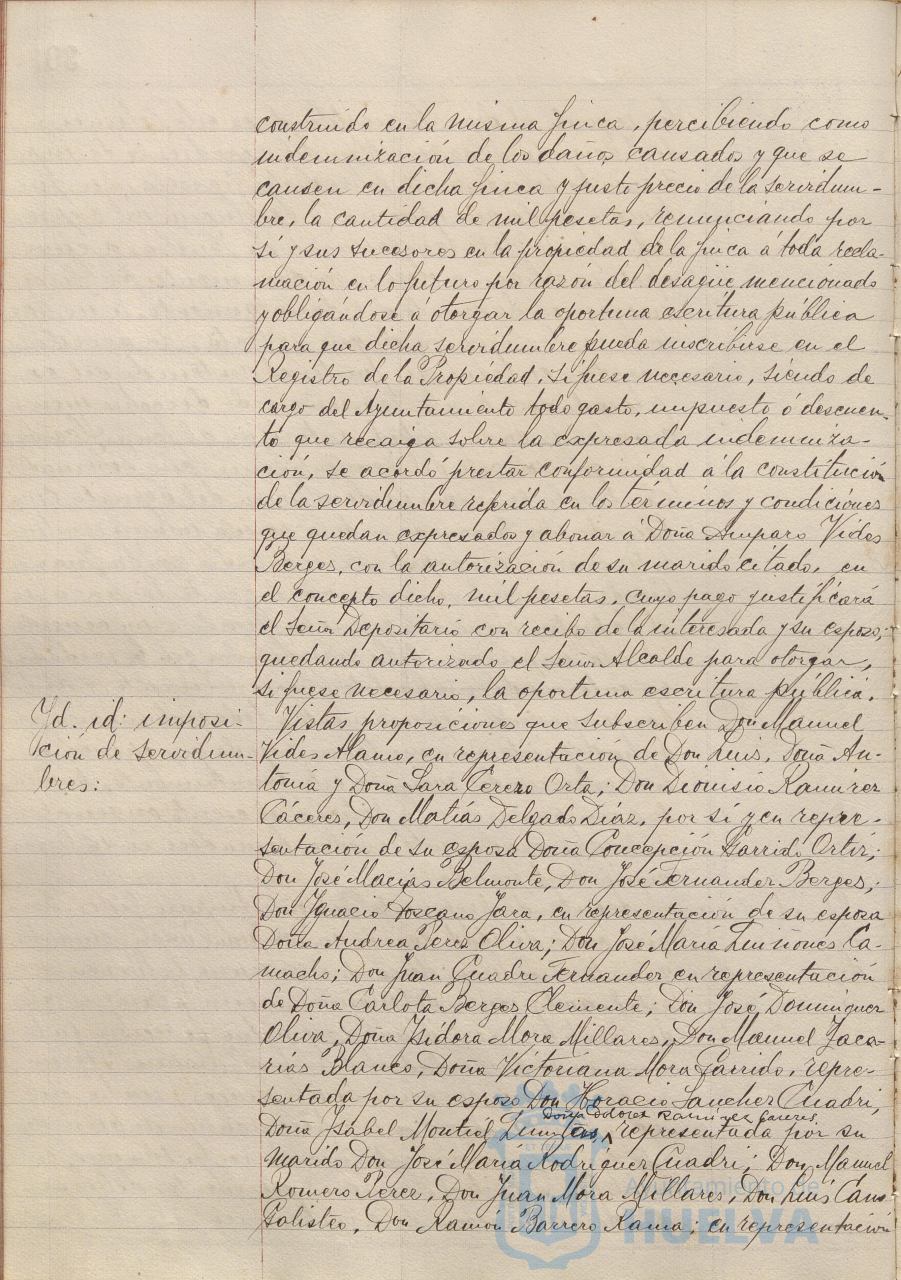 construído en la misma finca, percibiendo como
indemnización de los daños causados y que se
causen en dicha finca y justo precio de la servidum-
bre, la cantidad de mil pesetas, renunciando por
sí y sus sucesores en la propiedad de la finca á toda recla-
mación en lo futuro por razón del desagüe mencionado
y obligándose á otorgar la oportuna escritura pública
para que dicha servidumbre pueda inscribirse en el
Registro de la Propiedad, si fuese necesario, siendo de
cargo del Ayuntamiento todo gasto, impuesto ó descuen-
to que recaiga sobre la expresada indemniza-
ción, se acordó prestar conformidad á la constitución
de la servidumbre referida en los términos y condiciones
que quedan expresados y abonar á Doña Amparo Vides
Berges, con la autorización de su marido citado, en
el concepto dicho, mil pesetas, cuyo pago justificará
el Señor Depositario con recibo de la interesada y su esposo;
quedando autorizado el Señor Alcalde para otorgar,
si fuese necesario, la oportuna escritura pública.
Yd. id: imposi-
ción de servidum-
bres:
Vistas proposiciones que subscriben Don Manuel
Vides Alamo, en representación de Don Luis, Doña An-
tonia y Doña Sara Cerezo Orta; Don Dionisio Ramirez
Cáceres, Don Matías Delgado Díaz, por sí y en repre-
sentación de su esposa Doña Concepción Garrido Ortiz;
Don José Macías Belmonte, Don José Fernandez Berges;
Don Ygnacio Toscano Jara, en representación de su esposa
Doña Andrea Perez Oliva; Don José María Quiñones Ca-
macho; Don Juan Cuadri Fernandez en representación
de Doña Carlota Berges Clemente; Don José Dominguez
Oliva, Doña Ysidora Mora Millares, Don Manuel Zaca-
rías Blanco, Doña Victoriana Mora Garrido, repre-
sentada por su esposo Don Horacio Sanchez Cuadri,
Doña Dolores Ramirez Caceres,
Doña Ysabel Montiel representada por su
marido Don José María Rodriguez Cuadri; Don Manuel
Romero Perez, Don Juan Mora Millares, Don Luis Cano
Galisteo, Don Ramón Barrero Rama; en representación
Ayuntamiento de
HUELVA